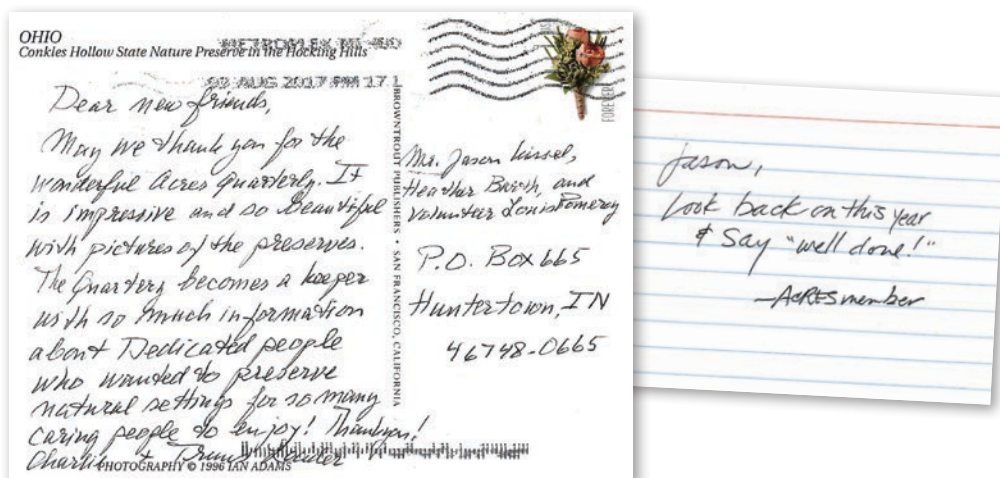 OHIO
Conkles Hollow State Nature Preserve in the Hocking Hills
AUG 2017 PM 17 L
FOREVER
Dear new friends,
May we thank you for the
wonderful Acres Quarterly. It
is impressive and so beautiful
with pictures of the preserves.
The Quarterly becomes a keeper
with so much information
about Dedicated people
who wanted to preserve
natural settings for so many
caring people to enjoy! Thank you!
Charlie +
PHOTOGRAPHY © 1996 IAN ADAMS
BROWNTROUT PUBLISHERS • SAN FRANCISCO, CALIFORNIA
Mr. Jason Kissel,
Heather Barth, and
Volunteer Louis Pomeroy
P.O. Box 665
Huntertown, IN
46748-0665
Jason,
Look back on this year
& Say "well done!"
—ACRES member